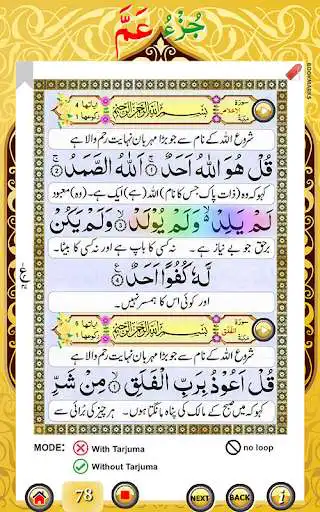 جُزْءُ عَمَّ
BOOKMARKS
سورة الإخلاص مكية
بِسْمِ اللّٰهِ الرَّحْمٰنِ الرَّحِيْمِ
اٰیاتها 4
رکوعها 1
شروع اللہ کے نام سے جو بڑا مہربان نہایت رحم والا ہے
قُلْ هُوَ اللّٰهُ اَحَدٌ ۝۱ اَللّٰهُ الصَّمَدُ ۝۲
کہو کہ وہ (ذات پاک جس کا نام) اللہ (ہے) ایک ہے۔ (وہ) معبود
لَمْ يَلِدْ ۙ۬ وَلَمْ يُوْلَدْ ۝۳ وَلَمْ يَكُنْ
برحق جو بے نیاز ہے۔ نہ کسی کا باپ ہے اور نہ کسی کا بیٹا۔
لَّهٗ كُفُوًا اَحَدٌ ۝۴
اور کوئی اس کا ہمسر نہیں۔
سورة الفلق مكية
بِسْمِ اللّٰهِ الرَّحْمٰنِ الرَّحِيْمِ
شروع اللہ کے نام سے جو بڑا مہربان نہایت رحم والا ہے
قُلْ اَعُوْذُ بِرَبِّ الْفَلَقِ ۝۱ مِنْ شَرِّ
کہو کہ میں صبح کے مالک کی پناہ مانگتا ہوں۔ ہر چیز کی برائی سے
MODE: With Tarjuma
no loop
Without Tarjuma
78
NEXT
BACK
i